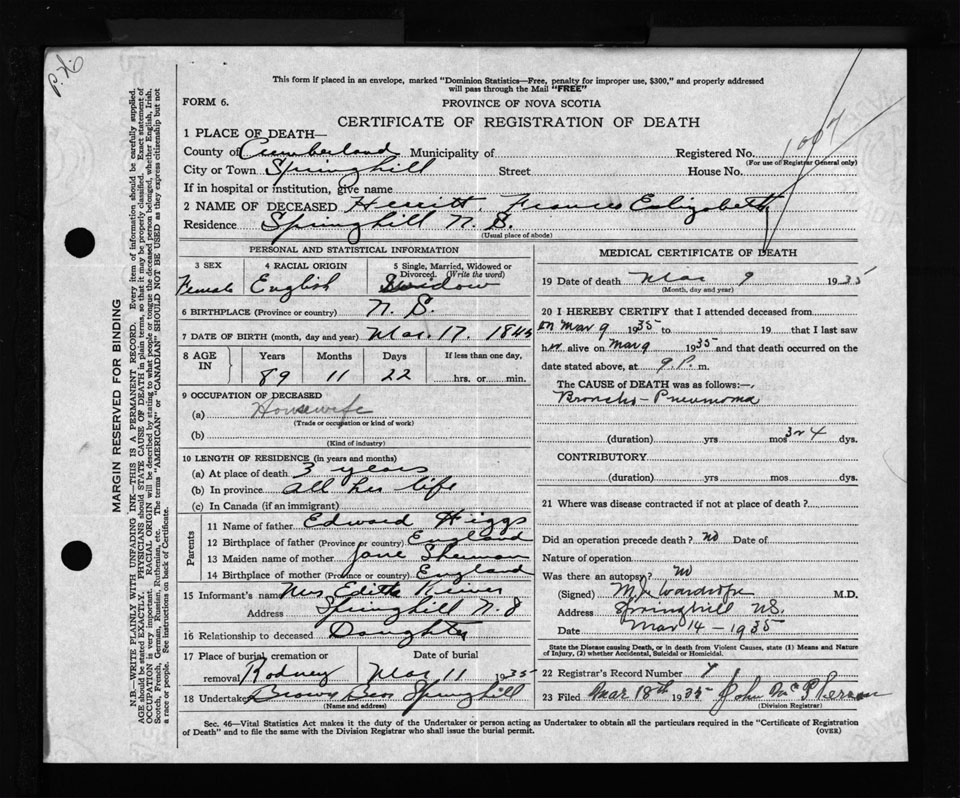 P.K.
This form if placed in an envelope, marked "Dominion Statistics—Free, penalty for improper use, $300," and properly addressed
will pass through the Mail "FREE"
FORM 6.
PROVINCE OF NOVA SCOTIA
CERTIFICATE OF REGISTRATION OF DEATH
1007
1 PLACE OF DEATH—
County of Cumberland Municipality of Registered No.
(For use of Registrar General only)
City or Town Springhill Street House No.
If in hospital or institution, give name
2 NAME OF DECEASED Herritt, Frances Ealizabeth
Residence Springhill N.S.
(Usual place of abode)
PERSONAL AND STATISTICAL INFORMATION
3 SEX 4 RACIAL ORIGIN 5 Single, Married, Widowed or
Divorced. (Write the word)
Female English Widow
6 BIRTHPLACE (Province or country) N.S.
7 DATE OF BIRTH (month, day and year) Mar. 17. 1845
8 AGE IN Years Months Days If less than one day,
89 11 22 hrs. or min.
9 OCCUPATION OF DECEASED
(a) Housewife
(Trade or occupation or kind of work)
(b)
(Kind of industry)
10 LENGTH OF RESIDENCE (in years and months)
(a) At place of death 3 years
(b) In province all her life
(c) In Canada (if an immigrant)
Parents
11 Name of father Edward Higgs
12 Birthplace of father (Province or country) England
13 Maiden name of mother Jane Sherman
14 Birthplace of mother (Province or country) England
15 Informant's name Mrs Edith
Address Springhill N.S
16 Relationship to deceased Daughter
17 Place of burial, cremation or Date of burial
removal Rodney Mar 11 1935
18 Undertaker Brown Bros Springhill
(Name and address)
MEDICAL CERTIFICATE OF DEATH
19 Date of death Mar 9 1935
(Month, day and year)
20 I HEREBY CERTIFY that I attended deceased from
on Mar 9 1935 to 19 that I last saw
her alive on Mar 9 1935 and that death occurred on the
date stated above, at 9.P. m.
The CAUSE OF DEATH was as follows:—
Broncho-Pneumonia
(duration) yrs mos 3 or 4 dys.
CONTRIBUTORY
(duration) yrs mos dys.
21 Where was disease contracted if not at place of death?
Did an operation precede death? no Date of
Nature of operation
Was there an autopsy? no
(Signed) M.D.
Address Springhill N.S.
Date Mar 14 - 1935
State the Disease causing Death, or in death from Violent Causes, state (1) Means and Nature
of Injury, (2) whether Accidental, Suicidal or Homicidal.
22 Registrar's Record Number 7
23 Filed Mar 18th 1935 John McPherson
(Division Registrar)
Sec. 46—Vital Statistics Act makes it the duty of the Undertaker or person acting as Undertaker to obtain all the particulars required in the "Certificate of Registration
of Death" and to file the same with the Division Registrar who shall issue the burial permit.
(OVER)
MARGIN RESERVED FOR BINDING
N.B.—WRITE PLAINLY WITH UNFADING INK—THIS IS A PERMANENT RECORD. Every item of information should be carefully supplied.
AGE should be stated EXACTLY. PHYSICIANS should STATE CAUSE OF DEATH in plain terms, so that it may be properly classified. Exact statement of
OCCUPATION is very important. RACIAL ORIGIN will be described by stating to what people or tongue the deceased person belonged, whether English, Irish,
Scotch, French, German, Russian, Ruthenian, etc. The terms "AMERICAN" or "CANADIAN" SHOULD NOT BE USED as they express citizenship but not
a race or people. See instructions on back of Certificate.